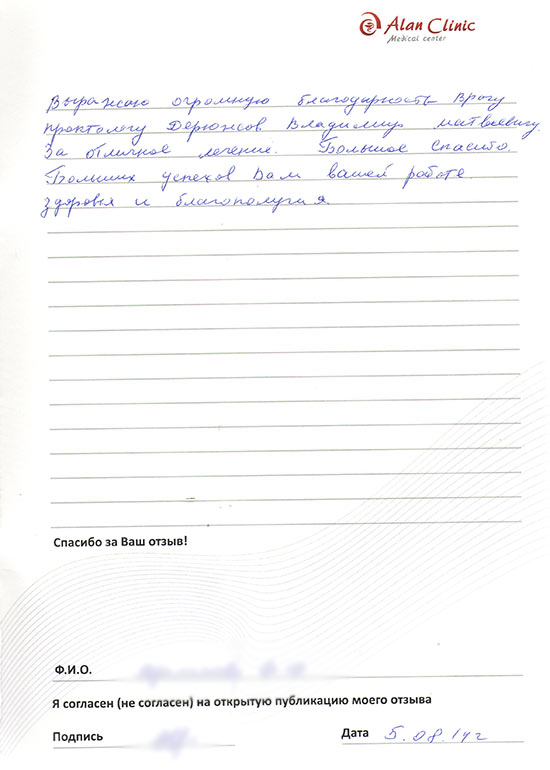 Alan Clinic
Medical center
Выражаю огромную благодарность Врачу
проктологу Дерюжсов Владимир матвеевичу.
За отличное лечение. Большое Спасибо.
Больших успехов Вам вашей работе
здоровья и благополучия.
Спасибо за Ваш отзыв!
Ф.И.О.
Я согласен (не согласен) на открытую публикацию моего отзыва
Подпись
Дата 5.08.14г